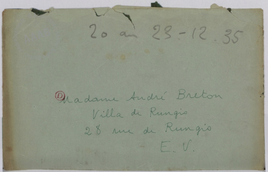 20 au 23-12.35
Madame André Breton
Villa de Rungis
28 rue de Rungis
E.V.